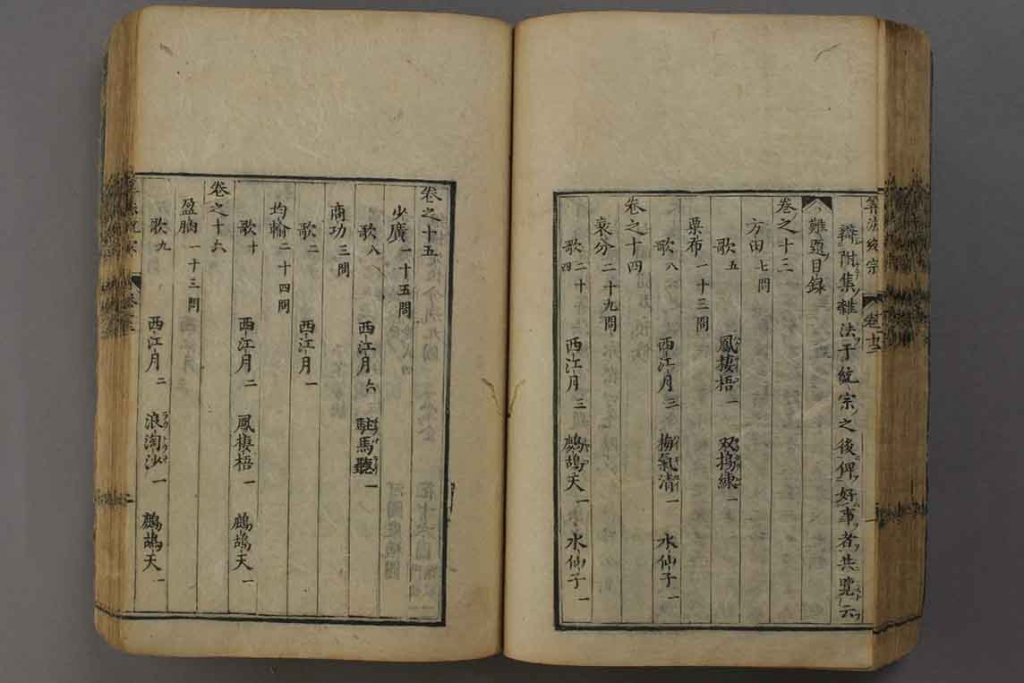 算法統宗
卷之十三
辯附集雜法于統宗之後俾好事者共覽云
難題目録
卷之十三
方田 七問
歌 五 鳳棲梧 一 双搗練 一
粟布 一十三問
歌 八 西江月 三 梅氣清 一 水仙子 一
卷之十四
衰分 二十九問
歌 二十四 西江月 三 鷓鴣天 一 水仙子 一
卷之十五
少廣 一十五問
歌 八 西江月 六 駐馬聽 一
商功 三問
歌 二 西江月 一
均輸 二十四問
歌 十 西江月 二 鳳棲梧 一 鷓鴣天 一
卷之十六
盈朒 一十三問
歌 九 西江月 二 浪淘沙 一 鷓鴣天 一